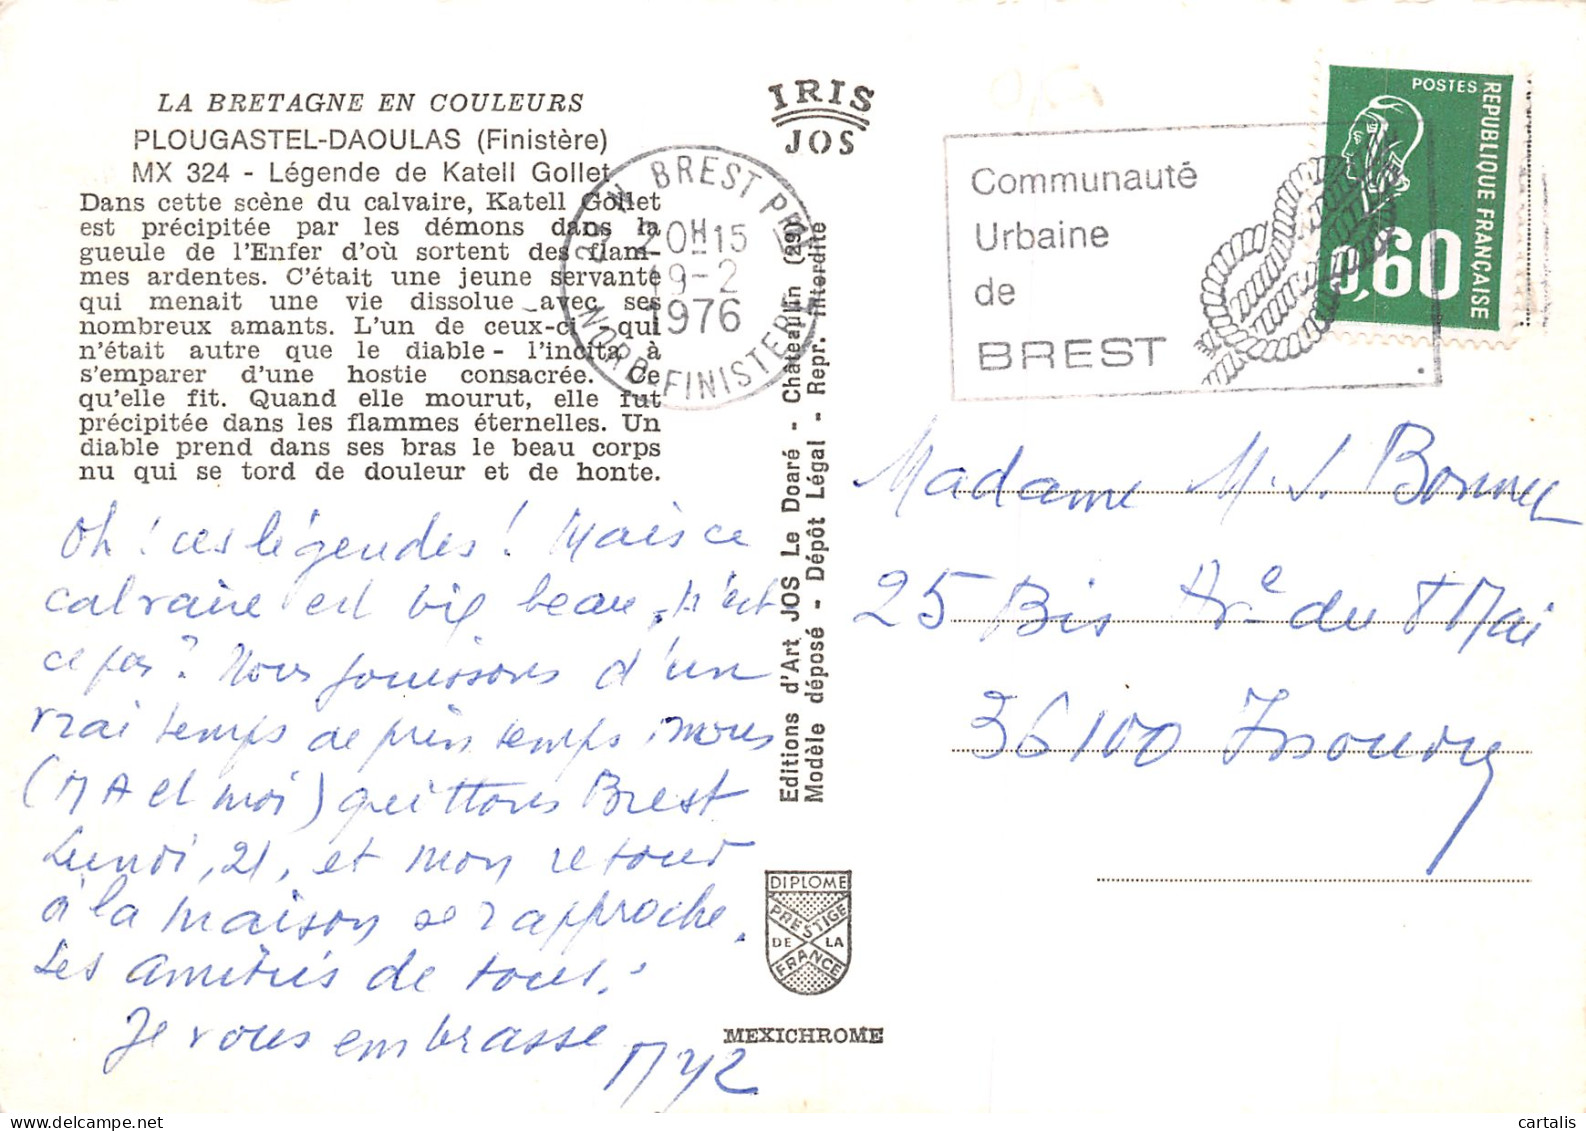 LA BRETAGNE EN COULEURS
PLOUGASTEL-DAOULAS (Finistère)
MX 324 - Légende de Katell Gollet
Dans cette scène du calvaire, Katell Gollet
est précipitée par les démons dans la
gueule de l'Enfer d'où sortent des flam-
mes ardentes. C'était une jeune servante
qui menait une vie dissolue avec ses
nombreux amants. L'un de ceux-ci - qui
n'était autre que le diable - l'incita à
s'emparer d'une hostie consacrée. Ce
qu'elle fit. Quand elle mourut, elle fut
précipitée dans les flammes éternelles. Un
diable prend dans ses bras le beau corps
nu qui se tord de douleur et de honte.
Oh ! ces légendes ! Mais ce
calvaire est beau, n'est
ce pas ? Nous jouissons d'un
vrai temps de printemps, nous
(MA et moi) quittons Brest
Lundi, 21, et mon retour
à la maison se rapproche.
Les amitiés de tous.
Je vous embrasse
IRIS
JOS
BREST
NORD-FINISTERE
20H15
19-2
1976
Editions d'Art JOS Le Doaré - Châteaulin (29)
Modèle déposé - Dépôt Légal - Repr. interdite
DIPLOME
PRESTIGE
DE LA
FRANCE
MEXICHROME
Communauté
Urbaine
de
BREST
POSTES
REPUBLIQUE FRANÇAISE
0,60
Madame M. J. Bonnet
25 Bis Av.e du 8 Mai
36100 Issoudun
cartalis